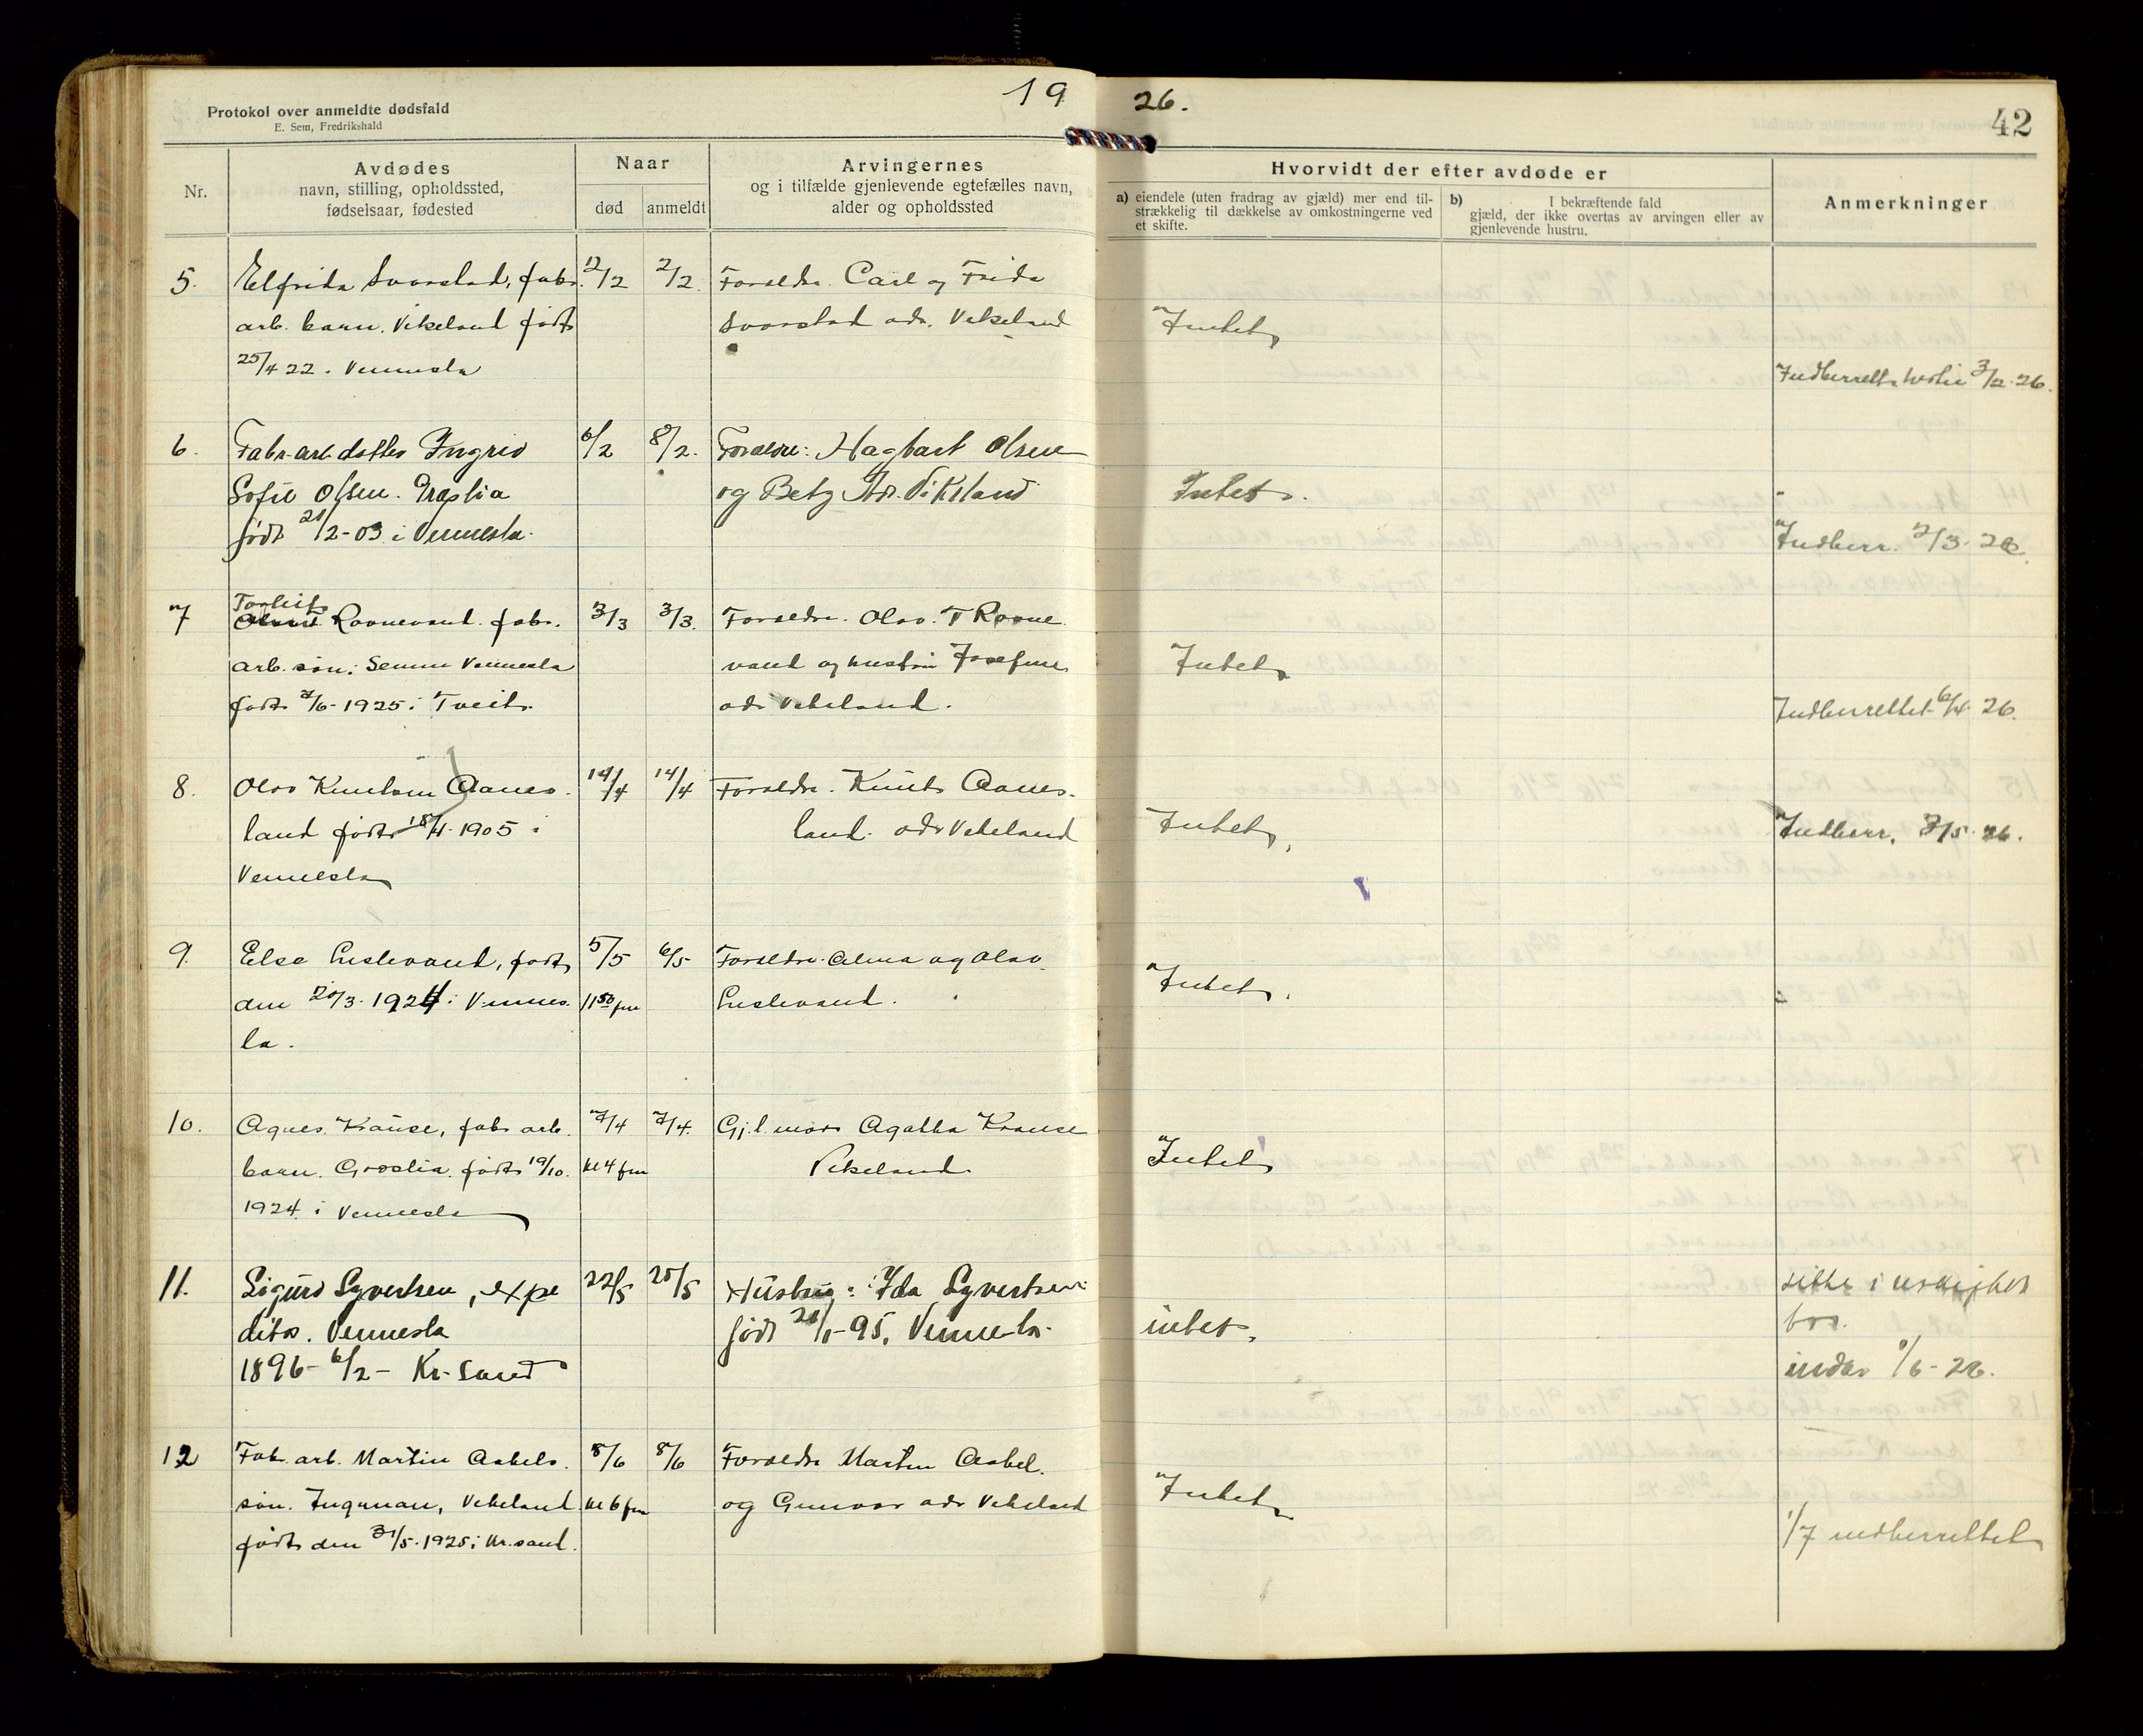 Protokol over anmeldte dødsfald
E. Sem, Fredrikshald
19 26.
42
Nr.
Avdødes
navn, stilling, opholdssted,
fødselsaar, fødested
Naar
død
anmeldt
Arvingernes
og i tilfælde gjenlevende egtefælles navn,
alder og opholdssted
Hvorvidt der efter avdøde er
a) eiendele (uten fradrag av gjæld) mer end til-
strækkelig til dækkelse av omkostningerne ved
et skifte.
b) I bekræftende fald
gjæld, der ikke overtas av arvingen eller av
gjenlevende hustru.
Anmerkninger
5.
Elfrida Svarstad, fabr.
arb. barn. Vikeland født
25/4 22. Vennesla
2/2.
Foreldre. Carl og Frida
Svarstad adr. Vikeland
Intet
3/2. 26.
6.
Fabr. arb. datter Ingrid
Sofie Olsen. Græslia
født 21/2-03 i Vennesla.
6/2
8/2.
Foreldre: Hagbart Olsen
og Betzy Adr. Vikeland
Intet.
Indberr. 2/3. 26
7
Torleif
Rovnevand. fabr.
arb. søn: Vennesla
født 7/6-1925 i Tveit.
3/3
3/3.
Foreldre. Olav. T Rovne
vand og hustru Josefine
adr Vikeland.
Intet
Indberrettet 6/4 26.
8.
Olav Knutsen Aanes.
land født 18/4. 1905 i
Vennesla
14/4
14/4
Foreldre. Knut Aanes.
land. adr Vikeland
Intet,
Indberr. 3/5. 26.
9.
Else Lislevand, født
den 20/3. 1924 i Vennes.
la.
5/5
11 50 fm
6/5
Foreldre. Alma og Olav
Lislevand.
Intet.
10.
Agnes Krause, fabr arb.
barn. Græslia. født 19/10.
1924 i Vennesla
7/4
kl 4 fm
7/4.
Gj.l. mor Agatha Krause
Vikeland.
Intet
11.
Sigurd Syvertsen, expe
ditør. Vennesla
1896- 6/2- Kr. Sand
22/5
25/5
Hustru: Ida Syvertsen
født 95. Vennesla.
intet.
sitte i uskiftet
bo.
indbr 1/6-26.
12
Fabr. arb. Martin Aabels.
søn. Ingman, Vikeland
født den 31/5. 1925 i Kr. sand.
8/6
kl 6 fm
8/6
Foreldre Martin Aabel.
og Gunvor adr Vikeland
Intet
1/7 indberrettet